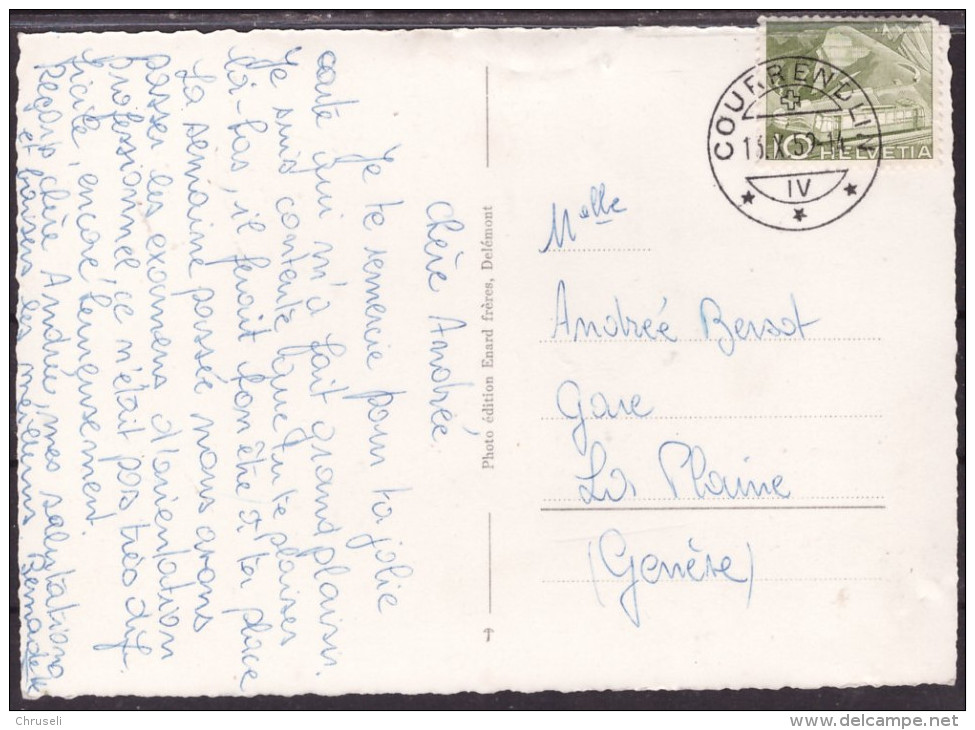 Chère Andrée.
Je te remercie pour ta jolie
carte qui m'a fait grand plaisir.
Je suis contente que tu te plaises
là-bas, il ferait bon être à ta place
La semaine passée nous avons
passer les examens d'orientation
professionnel, ce n'était pas très dif-
ficile, encore heureusement.
Reçois chère Andrée, mes salutations
et baisers les meilleurs Bernadette
Photo édition Enard frères, Delémont
COURRENDLIN
13.X.52-14
IV
10 HELVETIA
Melle
Andréé Bersot
Gare
La Plaine
(Genève)
Chruseli
delcampe.net